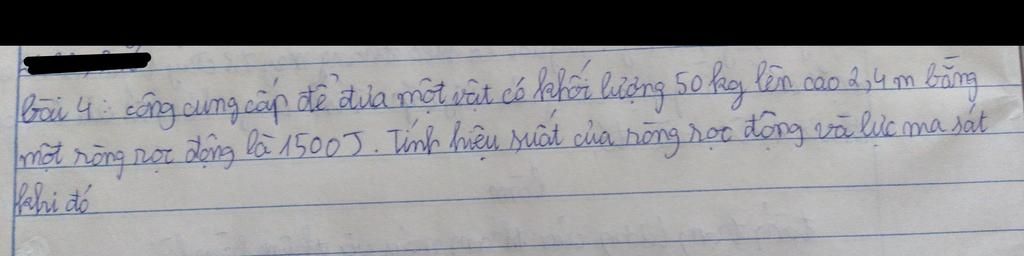 bài 4: công cung cấp để đưa một vật có khối lượng 50 kg lên cao 2,4 m bằng
một ròng rọc động là 1500J. Tính hiệu suất của ròng rọc động và lực ma sát
khi đó